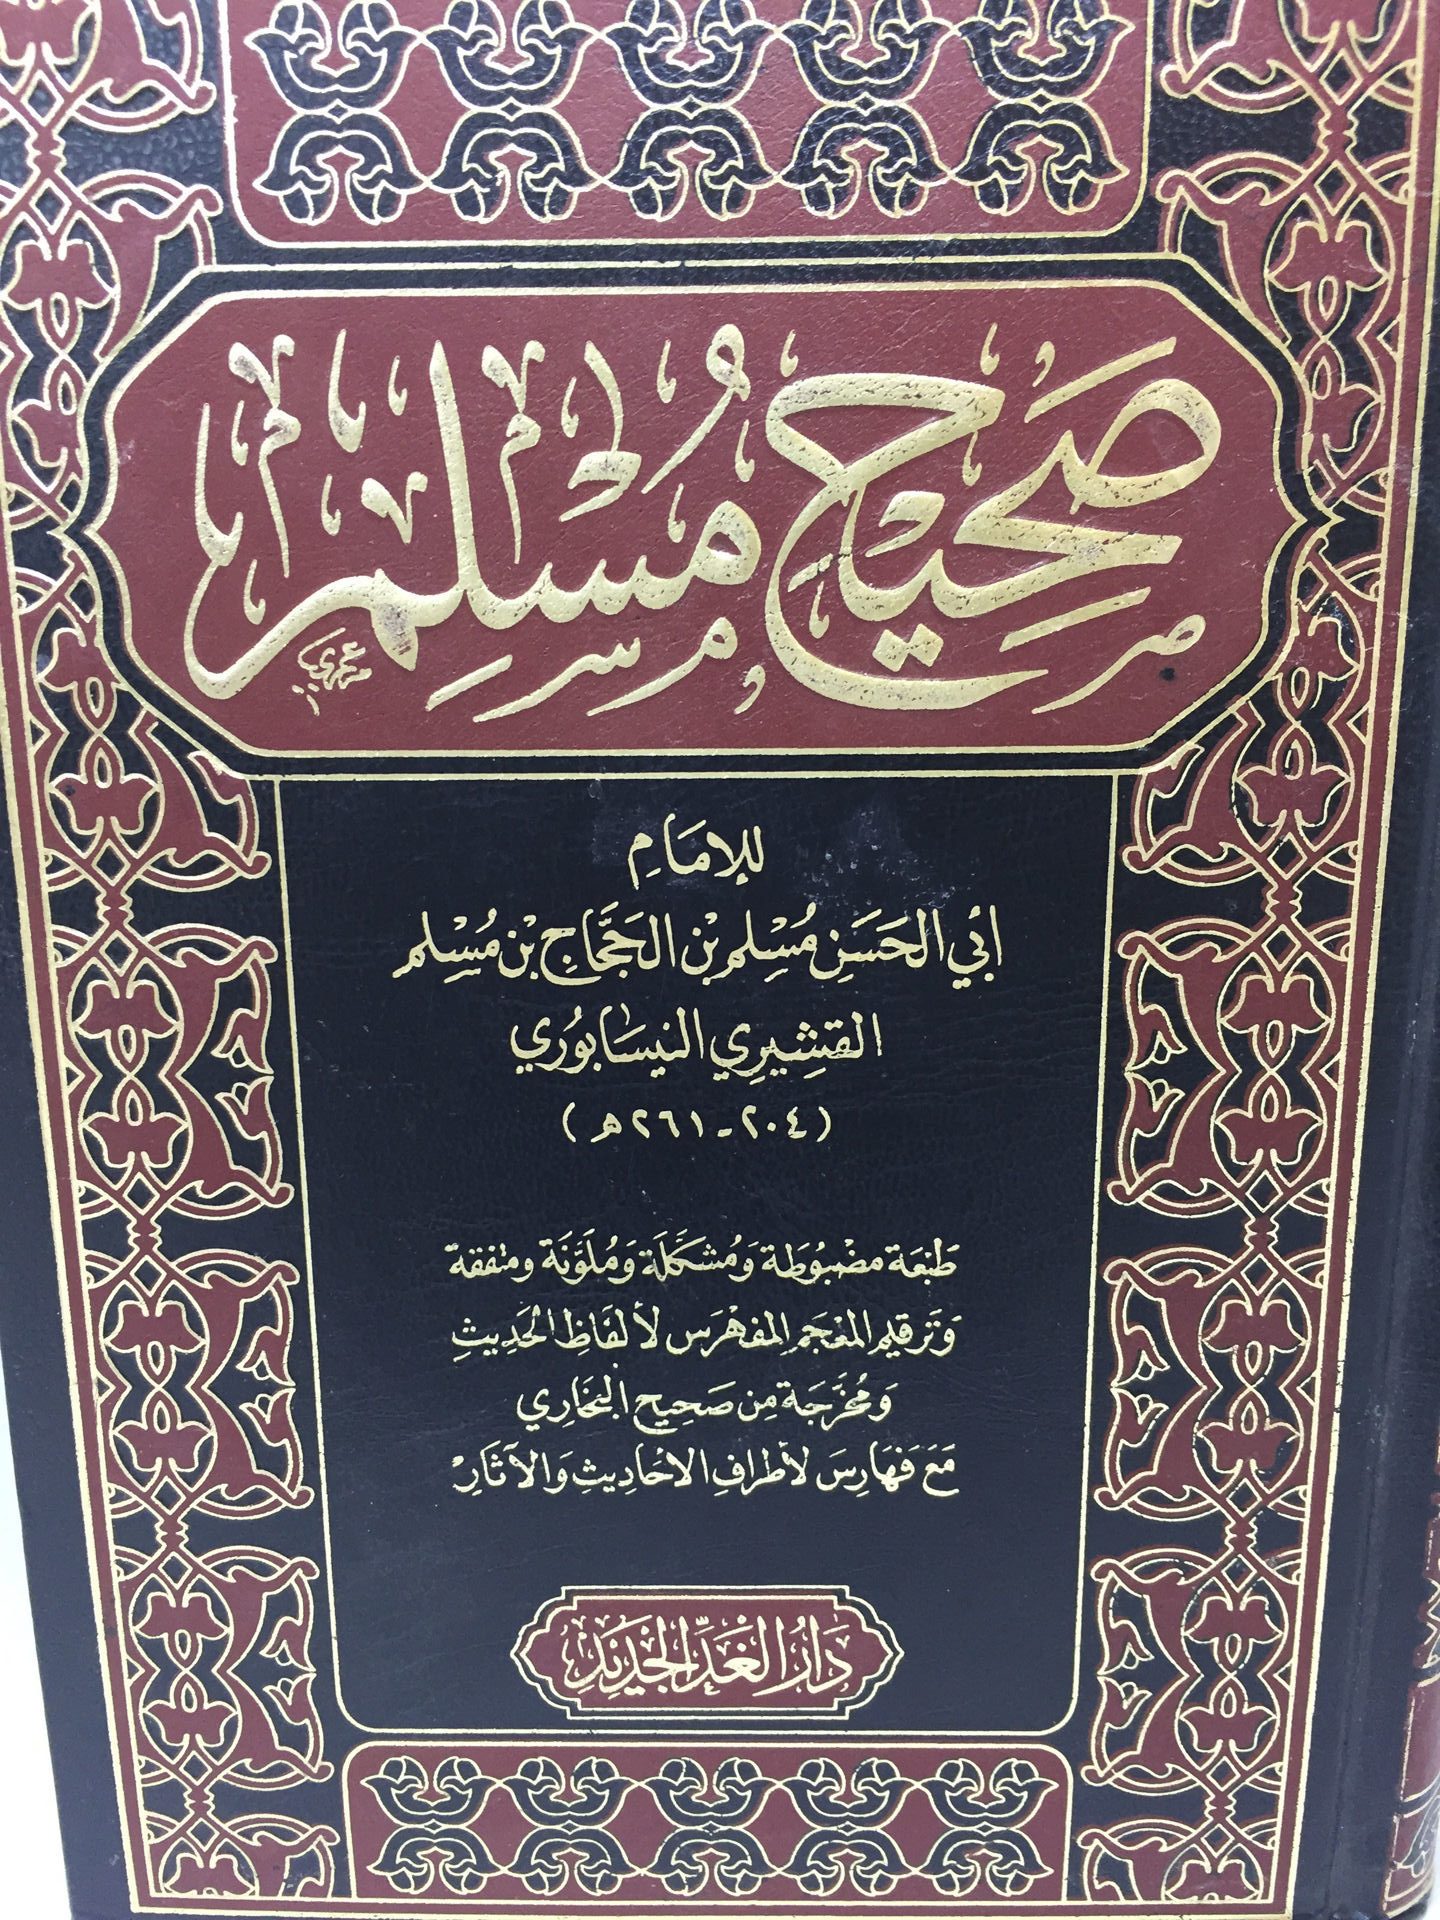 صَحِيح مُسْلِم
للإمَامِ
أبي الحَسَن مُسْلِم بْن الحَجَّاجِ بْن مُسْلِم
القشِيرِي النيسَابُوري
(٢٠٤-٢٦١ه)
طَبْعَة مضْبُوطَة وَمُشَكَّلَة وَمُلَوَّنَة ومتفقة
وَتَرقيم المعْجَم المفهْرَس لألفَاظِ الحَدِيثِ
وَمخرَّجَة مِن صَحِيح البخَاري
مَعَ فَهَارِسَ لأطرافِ الأحَادِيثِ وَالآثَارْ
دَارُ الغَدِّ الجَدِيْد